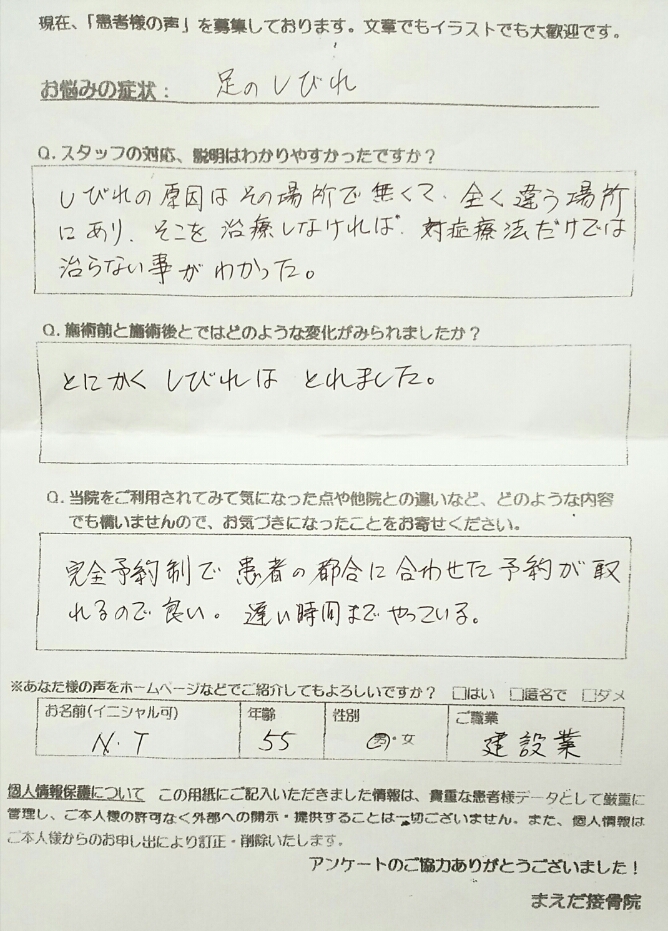 現在、「患者様の声」を募集しております。文章でもイラストでも大歓迎です。
お悩みの症状： 足のしびれ
Q.スタッフの対応、説明はわかりやすかったですか？
しびれの原因はその場所で無くて、全く違う場所
にあり、そこを治療しなければ、対症療法だけでは
治らない事がわかった。
Q.施術前と施術後とではどのような変化がみられましたか？
とにかくしびれはとれました。
Q.当院をご利用されてみて気になった点や他院との違いなど、どのような内容
でも構いませんので、お気づきになったことをお寄せください。
完全予約制で患者の都合に合わせた予約が取
れるので良い。遅い時間までやっている。
※あなた様の声をホームページなどでご紹介してもよろしいですか？ □はい □匿名で □ダメ
お名前(イニシャル可) 年齢 性別 ご職業
N・T 55 男・女 建設業
個人情報保護について この用紙にご記入いただきました情報は、貴重な患者様データとして厳重に
管理し、ご本人様の許可なく外部への開示・提供することは一切ございません。また、個人情報は
ご本人様からのお申し出により訂正・削除いたします。
アンケートのご協力ありがとうございました！
まえだ接骨院